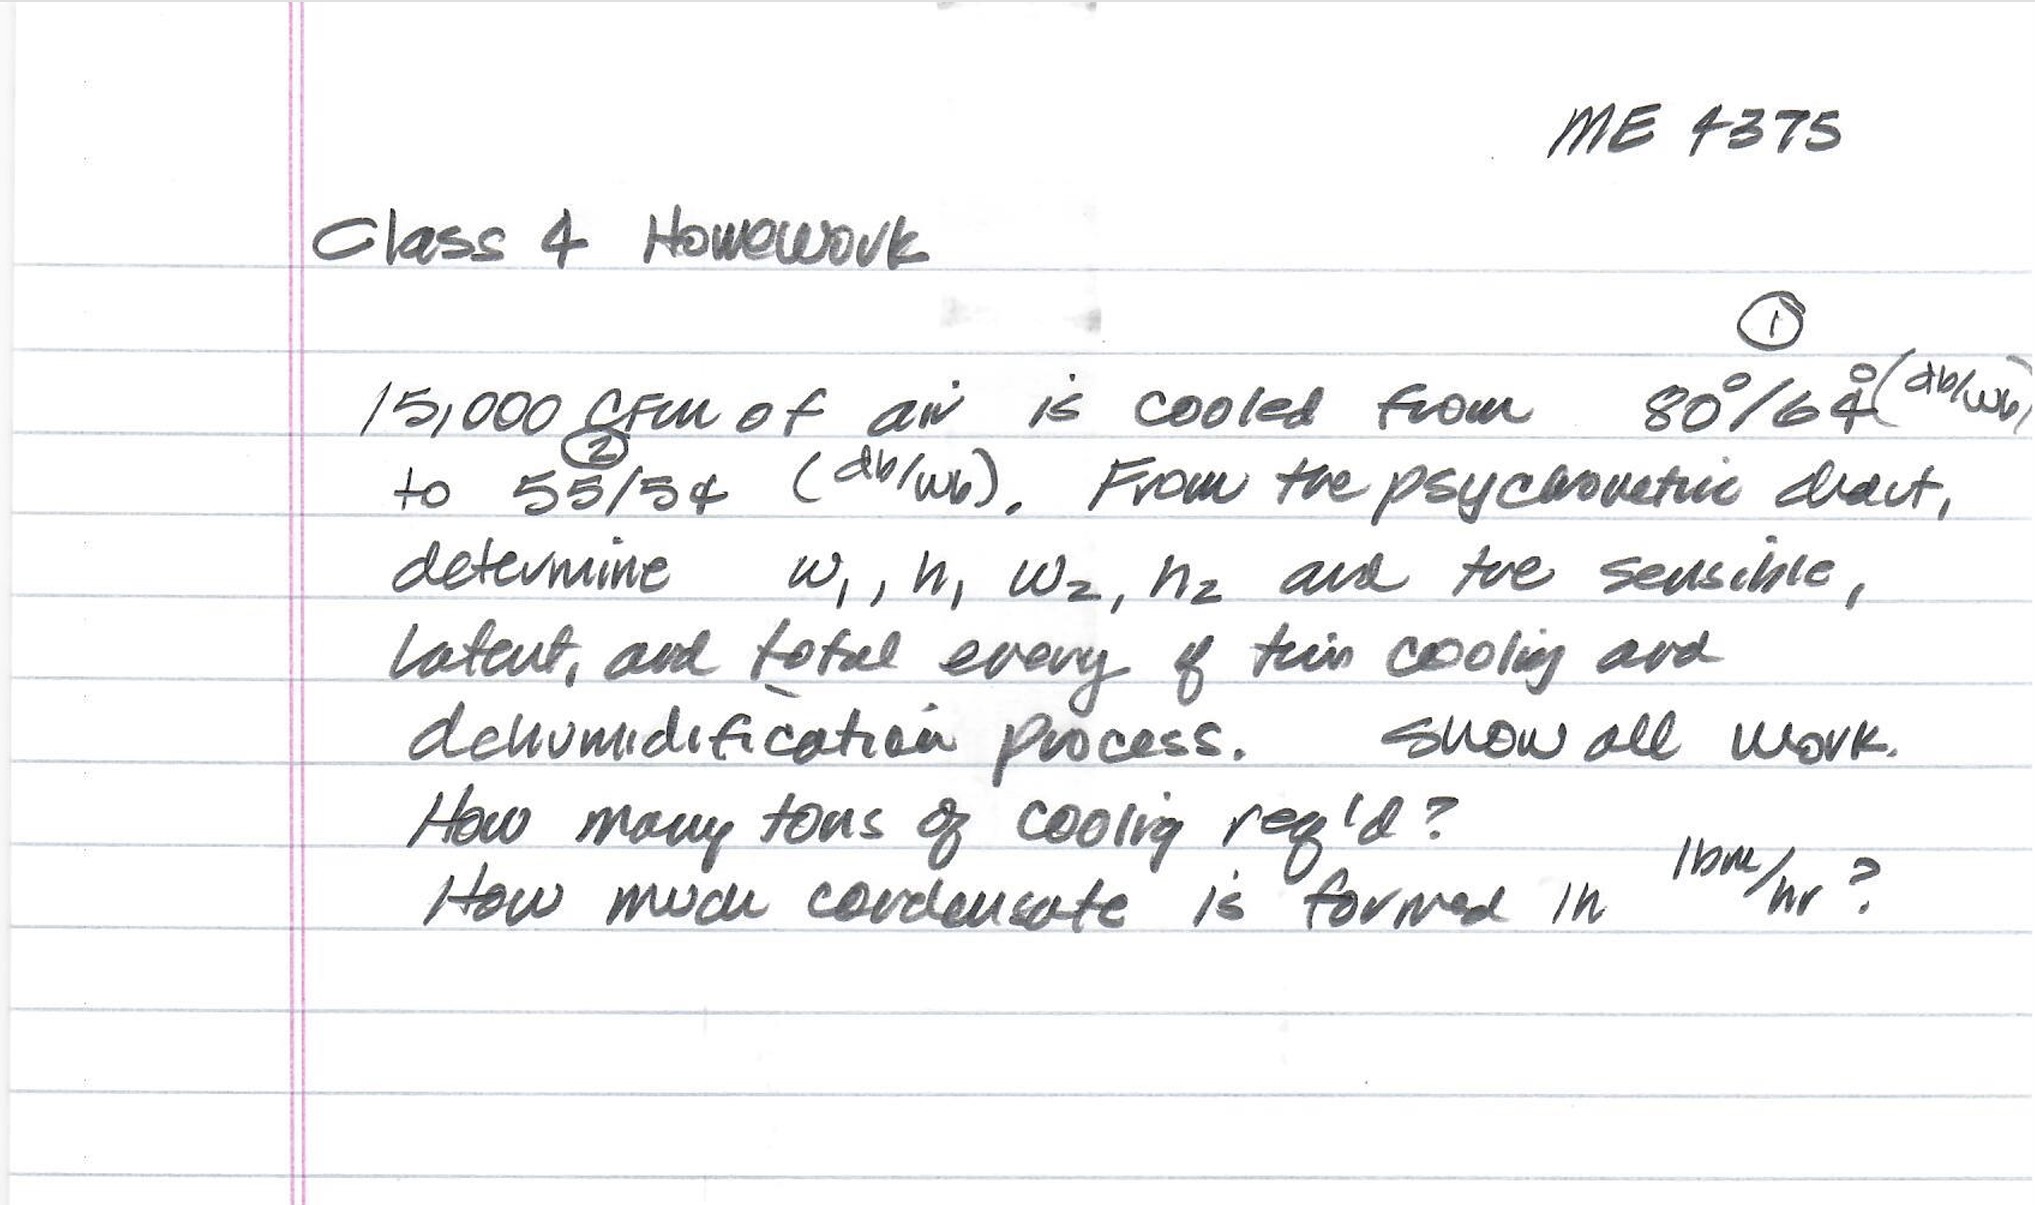 ME 4375
Class 4 Homework
①
15,000 CFM of air is cooled from 80°/64° (db/wb)
②
to 55/54 (db/wb). From the psychrometric chart,
determine w₁, h₁ w₂, h₂ and the sensible,
latent, and total energy of this cooling and
dehumidification process. Show all work.
How many tons of cooling req'd?
How much condensate is formed in lbm/hr?